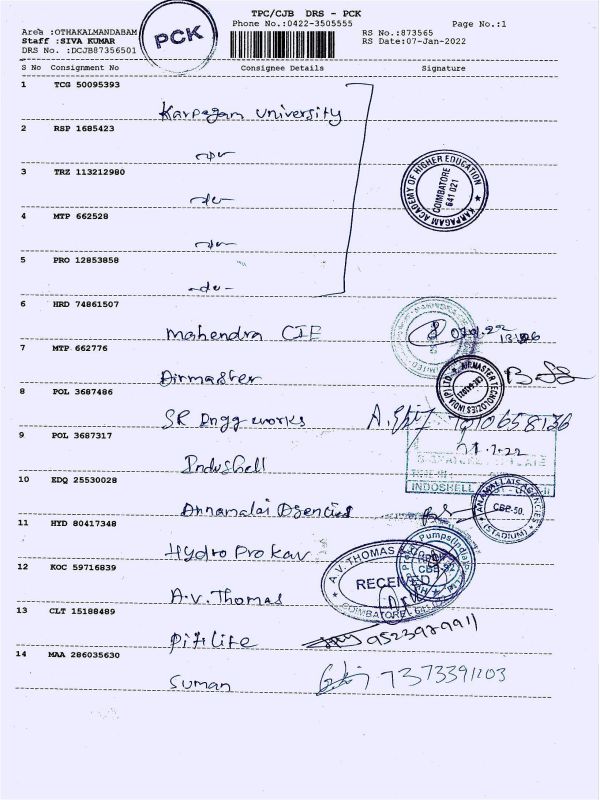 TPC/CJB DRS - PCK
Phone No.:0422-3505555
Page No.:1
PCK
Area :OTHAKALMANDABAM
Staff :SIVA KUMAR
DRS No. :DCJB87356501
RS No.:873565
RS Date:07-Jan-2022
S No Consignment No Consignee Details Signature
1 TCG 50095393
Karpagam University
2 RSP 1685423
-do-
3 TRZ 113212980
-do-
4 MTP 662528
-do-
5 PRO 12853858
-do-
KARPAGAM ACADEMY OF HIGHER EDUCATION
COIMBATORE
641 021
6 HRD 74861507
Mahendra CIE
7 MTP 662776
Airmaster
AIRMASTER TECNOLOGIES INDIA (P) LTD
8 POL 3687486
SR Engg works
9 POL 3687317
Indushell
INDOSHELL
10 EDQ 25530028
Annamalai Agencies
ANAMALLAIS AGENCIES
CBE-50.
(STADIUM)
11 HYD 80417348
Hydro Prokav
Pumps(India)
12 KOC 59716839
A.V. Thomas
A.V. THOMAS
RECEIVED
COIMBATORE
13 CLT 15188489
9523929911
14 MAA 286035630
Suman 7373391203